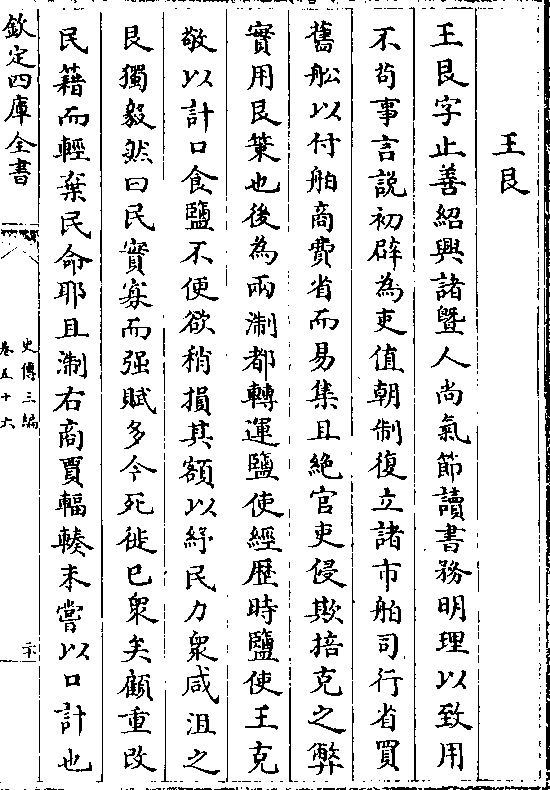 王艮
王艮字止善紹興諸暨人尚氣節讀書務明理以致用
不苟事言說初辟為吏值朝制復立諸市舶司行省買
舊舩以付舶商費省而易集且絶官吏侵欺掊克之弊
實用艮策也後為兩淛都轉運鹽使經歴時鹽使王克
敬以計口食鹽不便欲稍損其額以紓民力衆咸沮之
艮獨毅然曰民實寡而强賦多今死徙已衆矣顧重改
民籍而輕棄民命耶且淛右商賈輻輳未嘗以口計也
欽定四庫全書
史傳三編
卷五十六